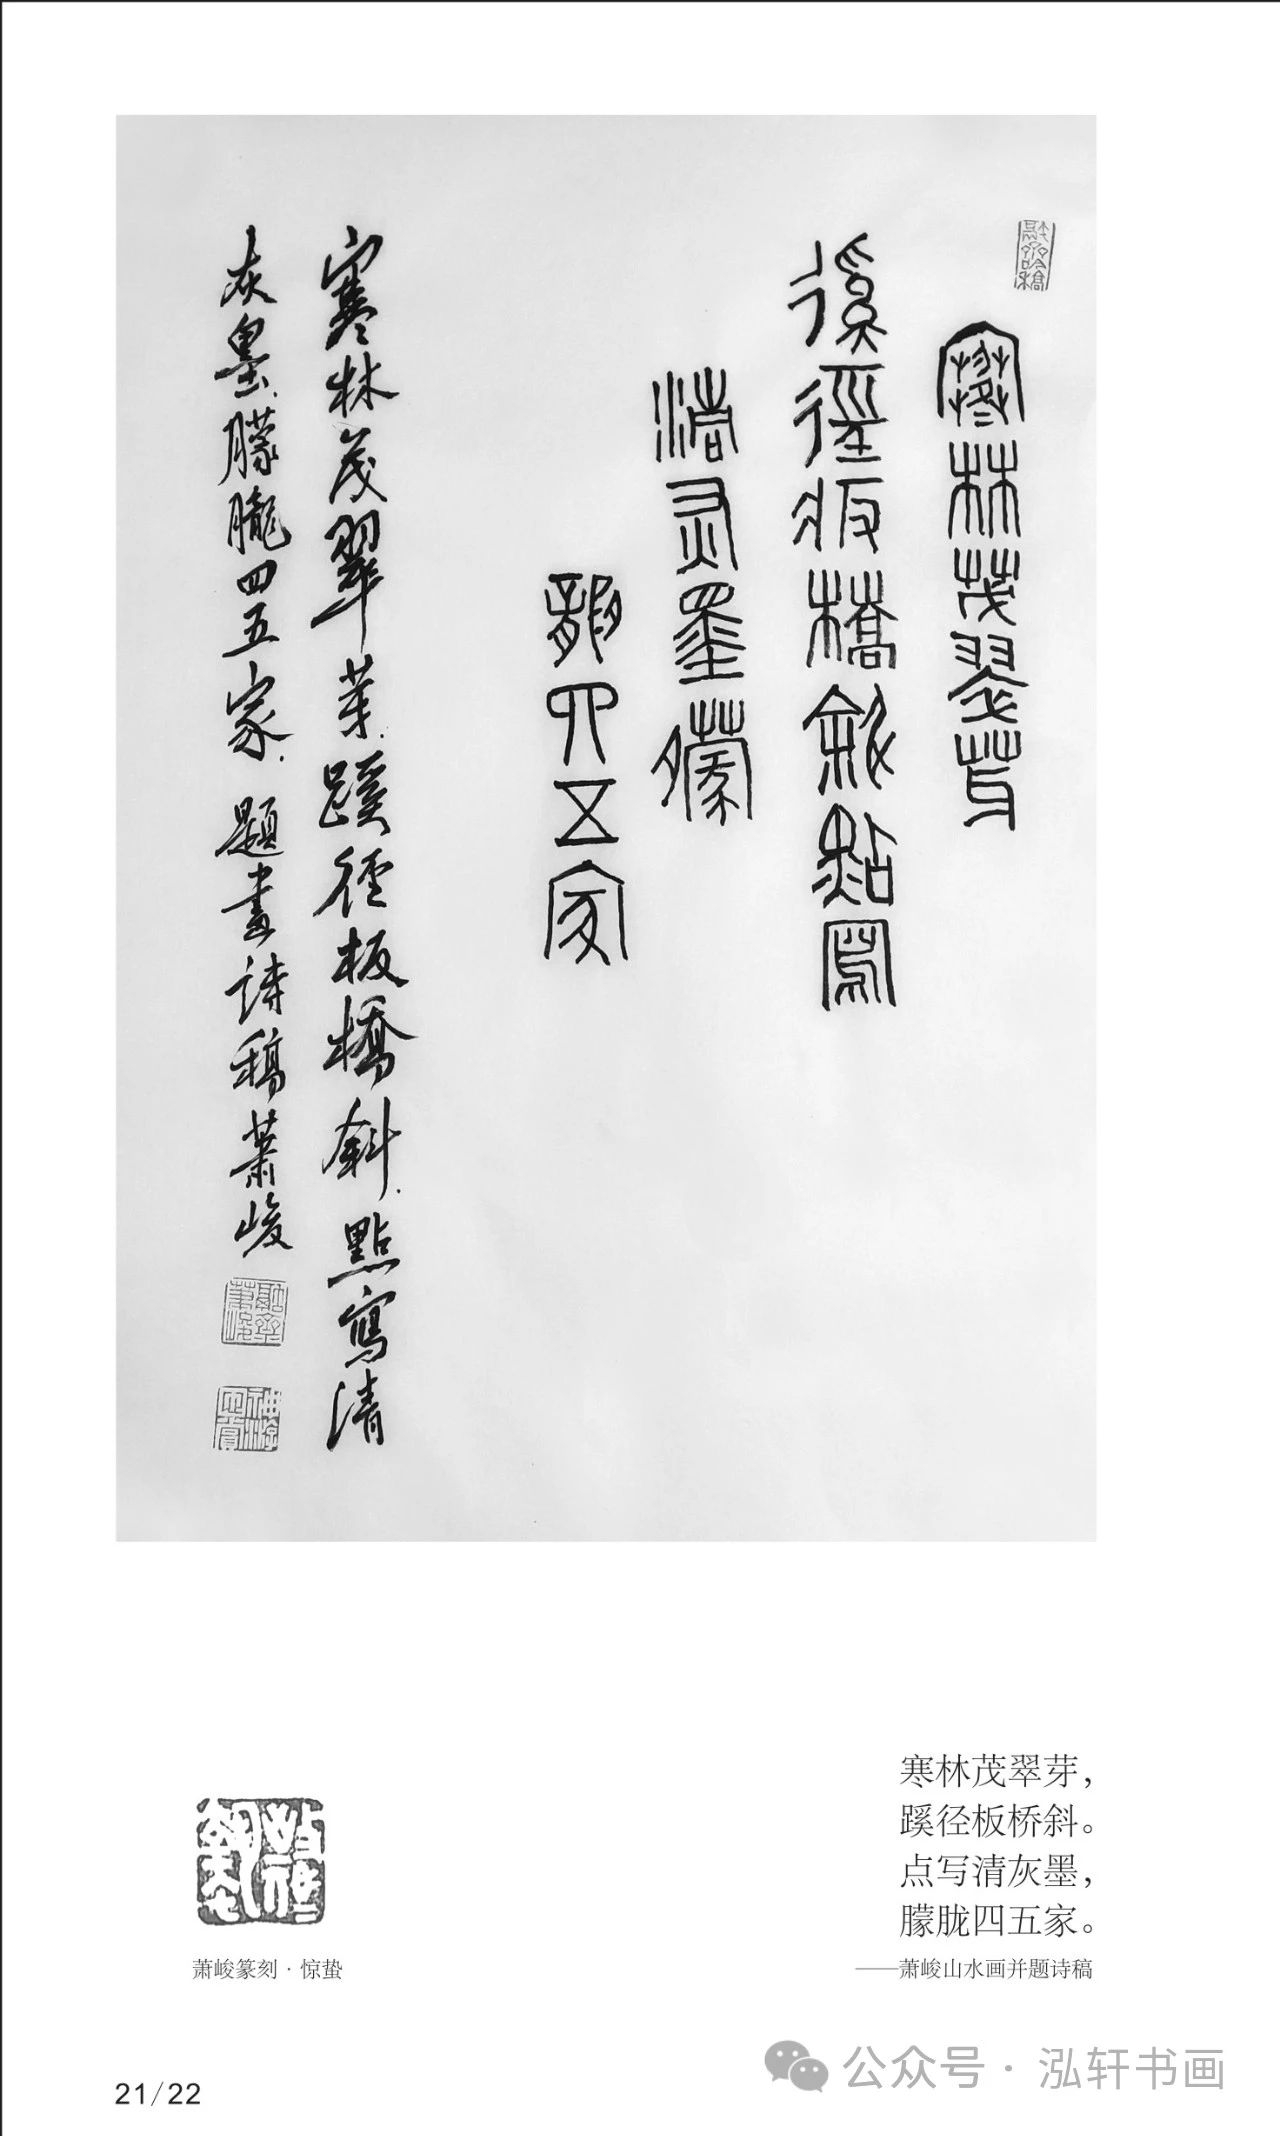 寒林茂翠芽
蹊徑板橋斜點寫
清灰墨朦
朧四五家
寒林茂翠芽蹊徑板橋斜點寫清
灰墨朦朧四五家題畫詩稿蕭峻
寒林茂翠芽，
蹊径板桥斜。
点写清灰墨，
朦胧四五家。
——萧峻山水画并题诗稿
萧峻篆刻·惊蛰
21/22
公众号·泓轩书画